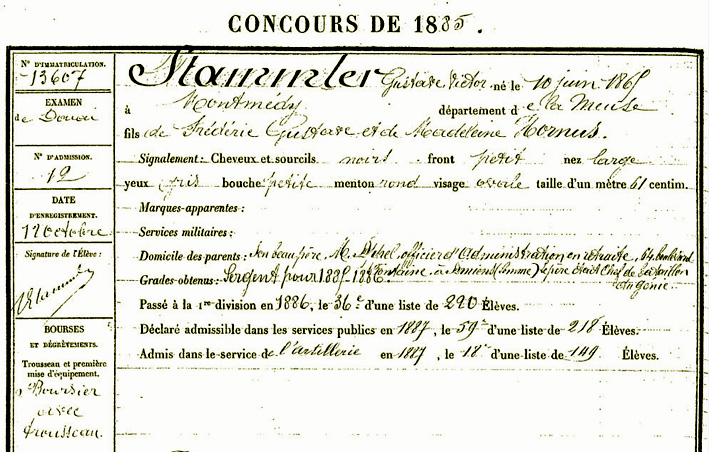 CONCOURS DE 1885.
N° D'IMMATRICULATION.
13607
EXAMEN
de Douai
N° D'ADMISSION.
12
DATE
D'ENREGISTREMENT.
12 octobre
Signature de l'Élève:
Stammler
BOURSES
ET DÉGRÈVEMENTS.
Trousseau et première
mise d'équipement.
Boursier
avec
trousseau.
Stammler Gustave Victor né le 10 juin 1865
à Montmédy département de la Meuse
fils de Frédéric Gustave et de Madeleine Hornus.
Signalement: Cheveux et sourcils noirs front petit nez large
yeux gris bouche petite menton rond visage ovale taille d'un mètre 61 centim.
Marques apparentes:
Services militaires:
Domicile des parents: Son beau père, M. officier d'Administration en retraite, 64
à Amiens (Somme) le père était Chef de Bataillon
du génie
Grades obtenus: Sergent pour 1885 1886.
Passé à la 1re division en 1886, le 36e d'une liste de 220 Élèves.
Déclaré admissible dans les services publics en 1887, le 59e d'une liste de 218 Élèves.
Admis dans le service de l'artillerie en 1887, le 18e d'une liste de 149 Élèves.